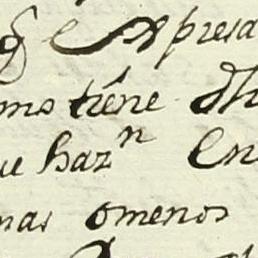 q̃ Expresa
mo tiene dh
ue hazn En
mas omenos